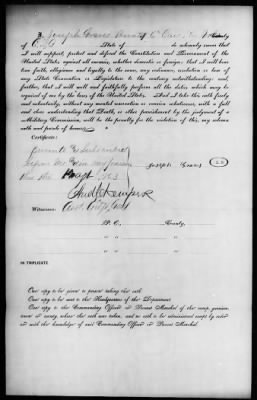 I, Joseph Graves County of Cass
County of State of do solemnly swear that
I will support, protect and defend the Constitution and Government of the
United States against all enemies, whether domestic or foreign; that I will bear
true faith, allegiance and loyalty to the same, any ordinance, resolution or law of
any State Convention or Legislature to the contrary notwithstanding; and
further, that I will well and faithfully perform all the duties which may be
required of me by the laws of the United States. And I take this oath freely
and voluntarily, without any mental reservation or evasion whatsoever, with a full
and clear understanding that Death, or other punishment by the judgment of a
Military Commission, will be the penalty for the violation of this, my solemn
oath and parole of honor.
Certificate:
before me
Joseph Graves
L. S.
the 1863
Witnesses:
P. O. County,
" "
" "
IN TRIPLICATE.
One copy to be given to person taking this oath.
One copy to be sent to the Headquarters of the Department.
One copy to the Commanding Officer or Provost Marshal of the camp, garrison,
town or county, where this oath was taken, and no oath to be administered except by or
with the knowledge of such Commanding Officer or Provost Marshal.